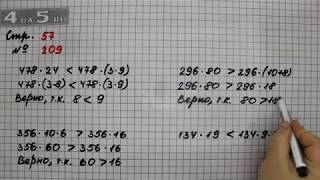 4DA5.RU
Стр. 57
№ 209
478·24 < 478·(3·9)
478·(3·8) < 478·(3·9)
Верно, т.к. 8 < 9
296·80 > 296·(10+8)
296·80 > 296·18
Верно, т.к. 80 > 18
356·10·6 > 356·16
356·60 > 356·16
Верно, т.к. 60 > 16
134·19 < 134·9·1